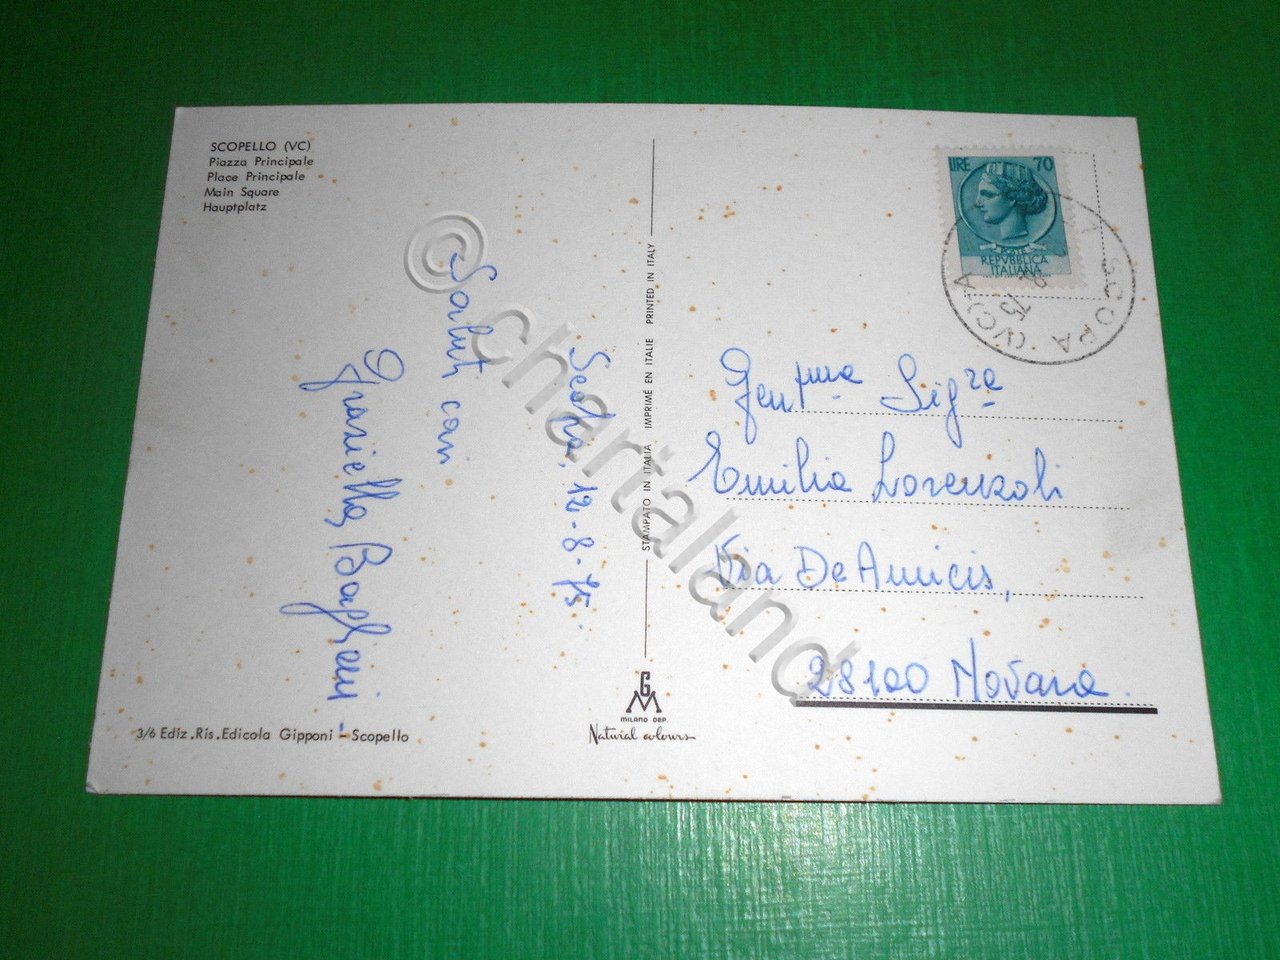 SCOPELLO (VC)
Piazza Principale
Place Principale
Main Square
Hauptplatz
Scopa, 12-8-75
Saluti con
Graziella
3/6 Ediz.Ris.Edicola Gipponi - Scopello
STAMPATO IN ITALIA IMPRIMÉ EN ITALIE PRINTED IN ITALY
GM
MILANO DEP.
Natural colours
LIRE 70
POSTE
REPVBBLICA
ITALIANA
SCOPA (VC)
Gent.ma Sig.ra
Emilia Lorenzoli
Via De Amicis,
28100 Novara.
© chartaland